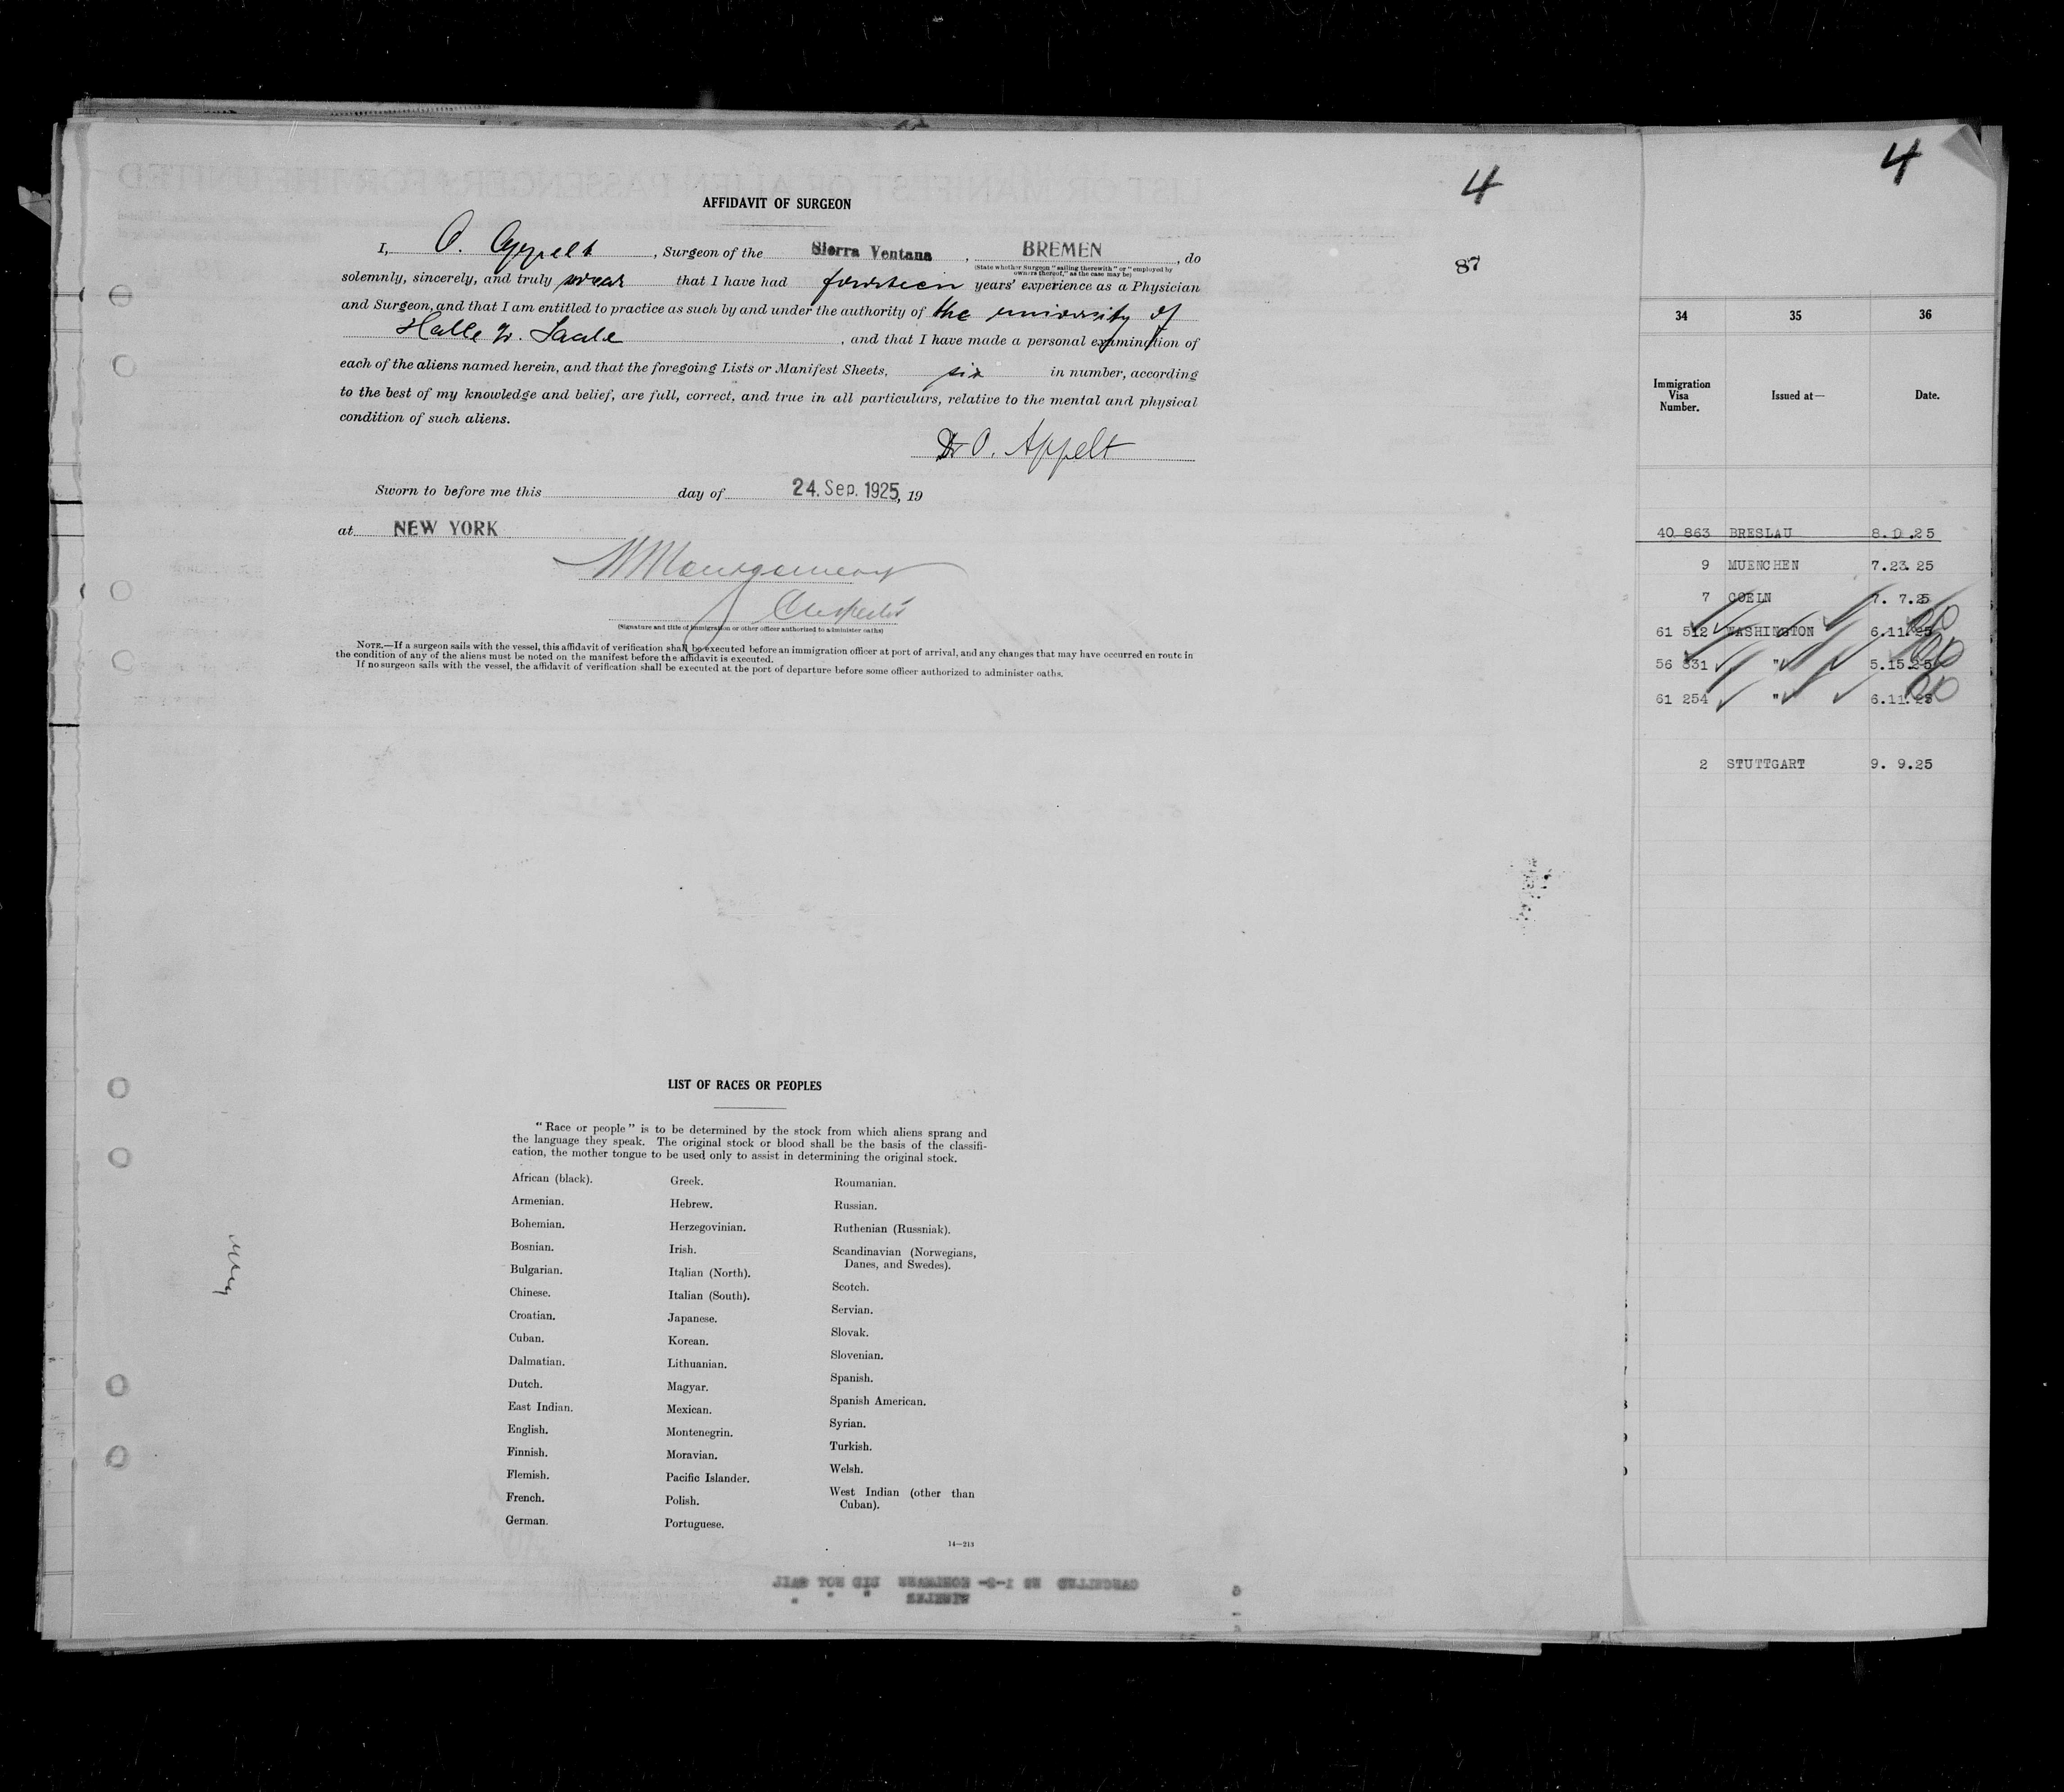 4
4
AFFIDAVIT OF SURGEON
I, O. Appelt, Surgeon of the Sierra Ventana, BREMEN, do
(State whether Surgeon "sailing therewith" or "employed by
owners thereof," as the case may be)
87
solemnly, sincerely, and truly swear that I have had fourteen years' experience as a Physician
and Surgeon, and that I am entitled to practice as such by and under the authority of the university of
Halle, and that I have made a personal examination of
each of the aliens named herein, and that the foregoing Lists or Manifest Sheets, six in number, according
to the best of my knowledge and belief, are full, correct, and true in all particulars, relative to the mental and physical
condition of such aliens.
Dr O. Appelt
Sworn to before me this day of 24. Sep. 1925, 19
at NEW YORK
(Signature and title of immigration or other officer authorized to administer oaths)
NOTE.—If a surgeon sails with the vessel, this affidavit of verification shall be executed before an immigration officer at port of arrival, and any changes that may have occurred en route in
the condition of any of the aliens must be noted on the manifest before the affidavit is executed.
If no surgeon sails with the vessel, the affidavit of verification shall be executed at the port of departure before some officer authorized to administer oaths.
34 35 36
Immigration
Visa
Number.
Issued at—
Date.
40 863 BRESLAU
9 MUENCHEN 7.23. 25
7 COELN 7. 7.25
61 512 WASHINGTON 6.11.25
56 831 " 5.15.25
61 254 " 6.11.25
2 STUTTGART 9. 9.25
LIST OF RACES OR PEOPLES
"Race or people" is to be determined by the stock from which aliens sprang and
the language they speak. The original stock or blood shall be the basis of the classifi-
cation, the mother tongue to be used only to assist in determining the original stock.
African (black).
Armenian.
Bohemian.
Bosnian.
Bulgarian.
Chinese.
Croatian.
Cuban.
Dalmatian.
Dutch.
East Indian.
English.
Finnish.
Flemish.
French.
German.
Greek.
Hebrew.
Herzegovinian.
Irish.
Italian (North).
Italian (South).
Japanese.
Korean.
Lithuanian.
Magyar.
Mexican.
Montenegrin.
Moravian.
Pacific Islander.
Polish.
Portuguese.
Roumanian.
Russian.
Ruthenian (Russniak).
Scandinavian (Norwegians,
Danes, and Swedes).
Scotch.
Servian.
Slovak.
Slovenian.
Spanish.
Spanish American.
Syrian.
Turkish.
Welsh.
West Indian (other than
Cuban).
14—213